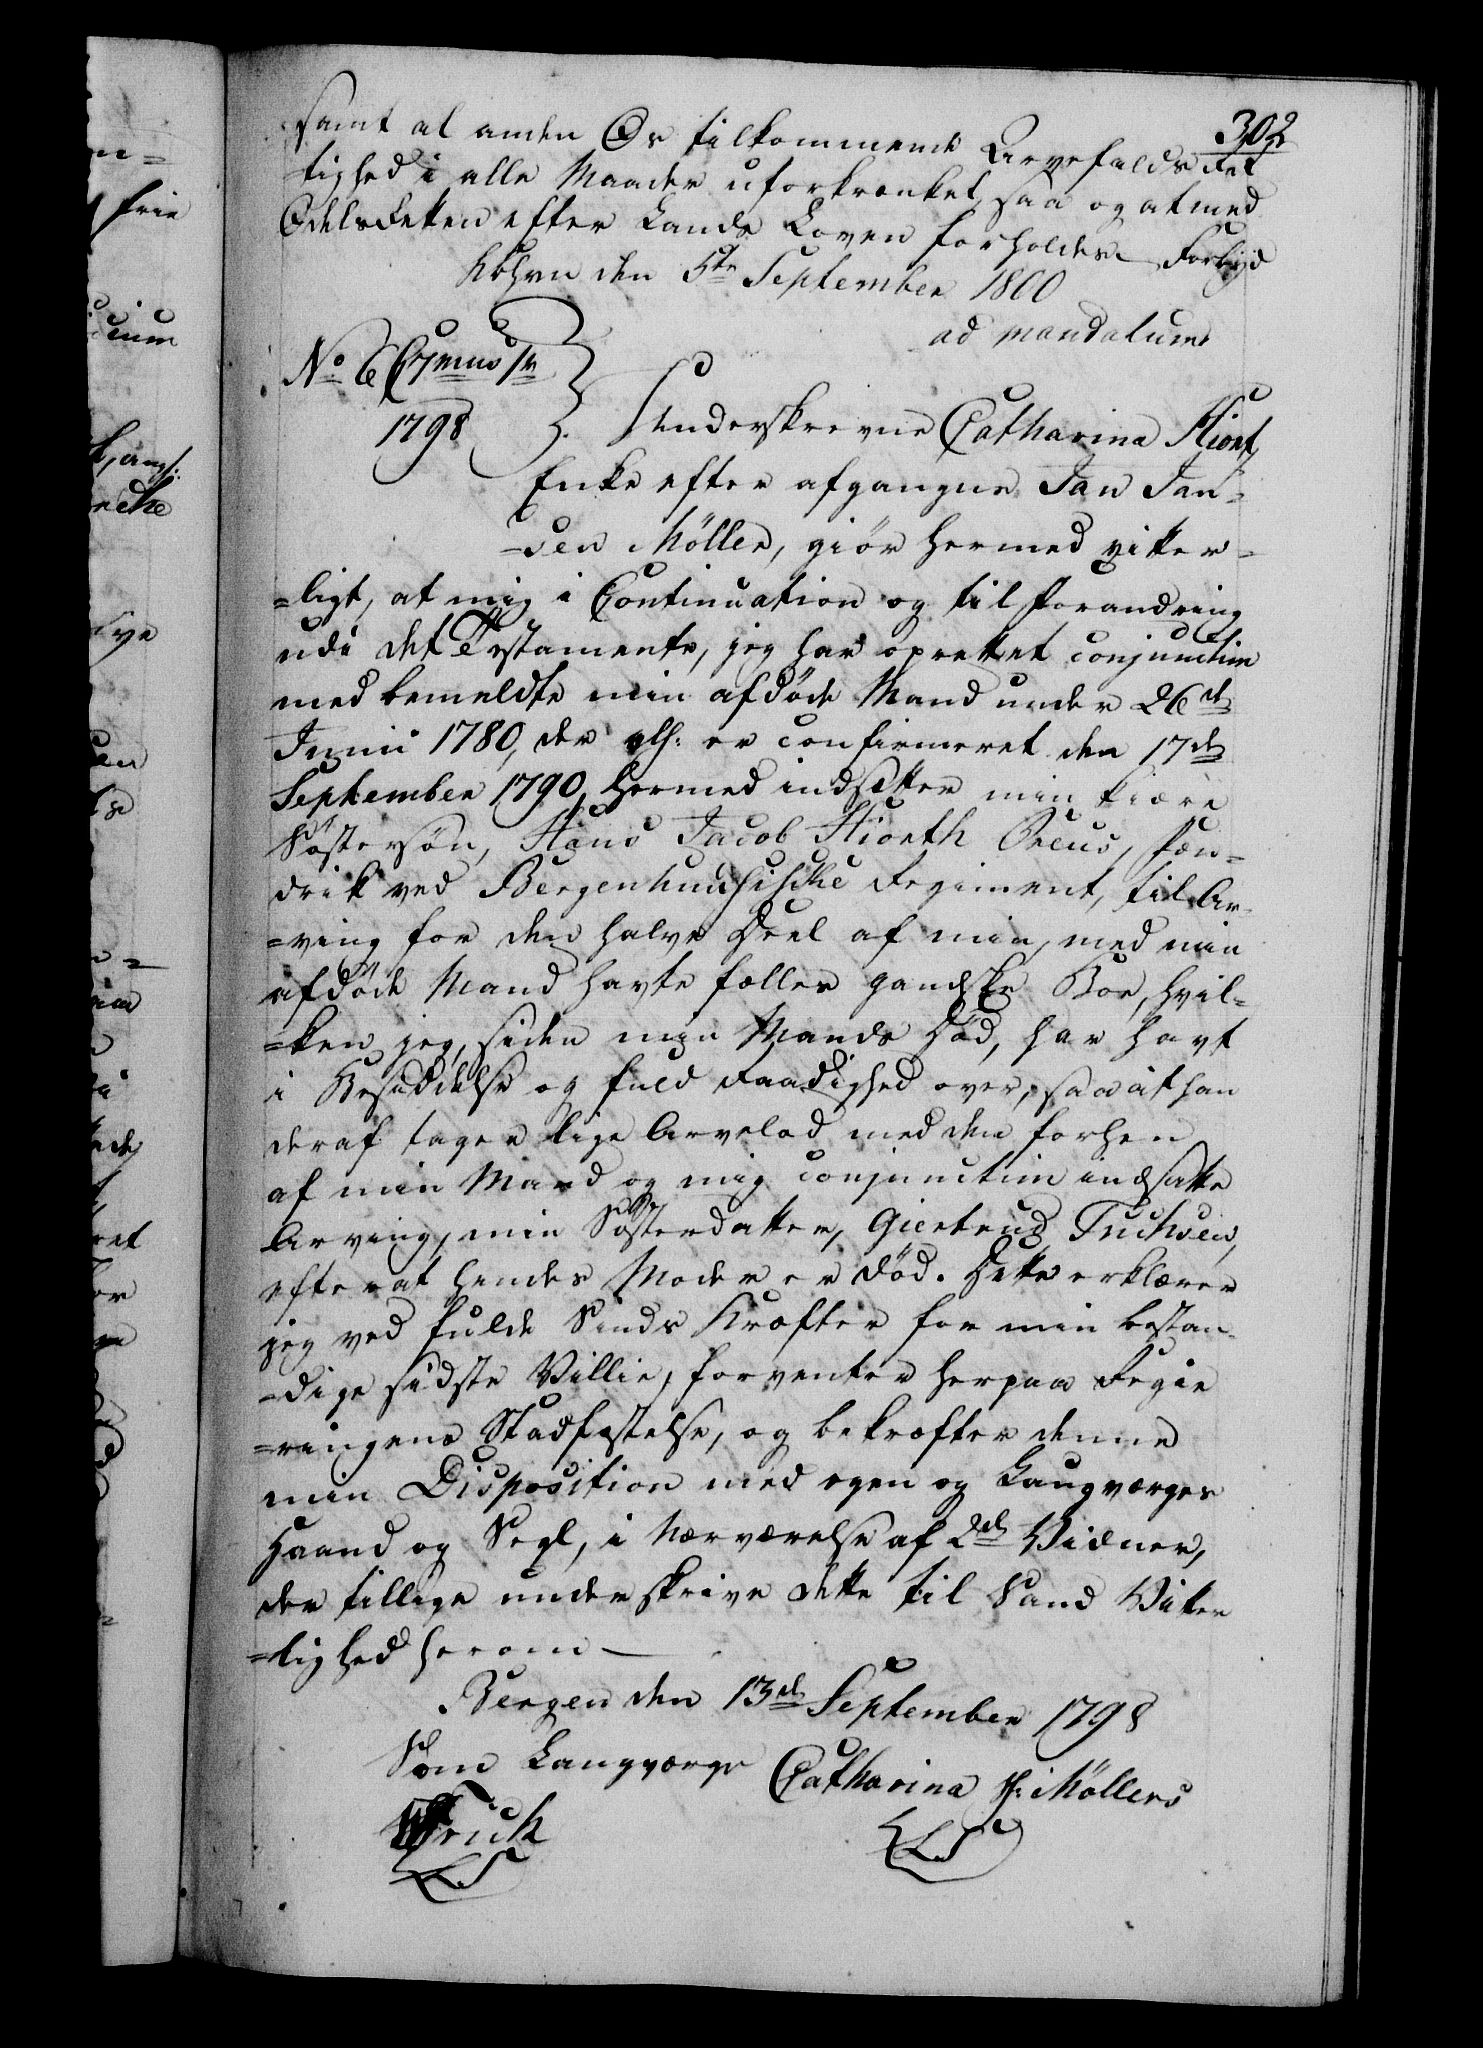 302
samt al anden Os tilkommende Arvefalds Ret
tighed i alle Maader uforkrænket, saa og at med
Odels Retten efter Lands Loven forholdes. Forbyd
Kbhvn den 5te September 1800
ad mandatum
No 6
1798
Underskrevne Catharina Hiort,
Enke efter afgangne Jan Jan-
-sen Möller, giör hermed vitter-
=ligt, at mig i Continuation og til forandring
udi det Testamente, jeg har oprettet conjunctim
med bemeldte min afdöde Mand under 26de
Junii 1780, der er confirmeret den 17de
September 1790, hermed indsetter min kiære
Söstersön, Hans Jacob Hiorth Preus, Fæn-
drik ved Bergenhuusische Regiment, til Ar-
=ving for den halve Deel af min, med min
afdöde Mand havte fælles gandske Boe, hvil-
=ken jeg, siden min Mands Död, har havt
i Besiddelse og fuld Raadighed over, saa at han
deraf tager lige Arvelod med den forhen
af min Mand og mig conjunctim indsatte
Arving, min Sösterdatter, Giertrud Tuchsen,
efterat hendes Moder er död. Dette erklærer
jeg ved fulde Sinds Kræfter for min bestan-
-dige sidste Villie, forventer herpaa Regie
=ringens Stadfæstelse, og bekræfter denne
min Disposition med egen og Laugværges
Haand og Segl, i Nærværelse af 2de Vidner,
der tillige underskrive dette til Sand Vitter
=lighed herom
Bergen den 13de September 1798
Som Laugværge Catharina H: Möllers
LS LS